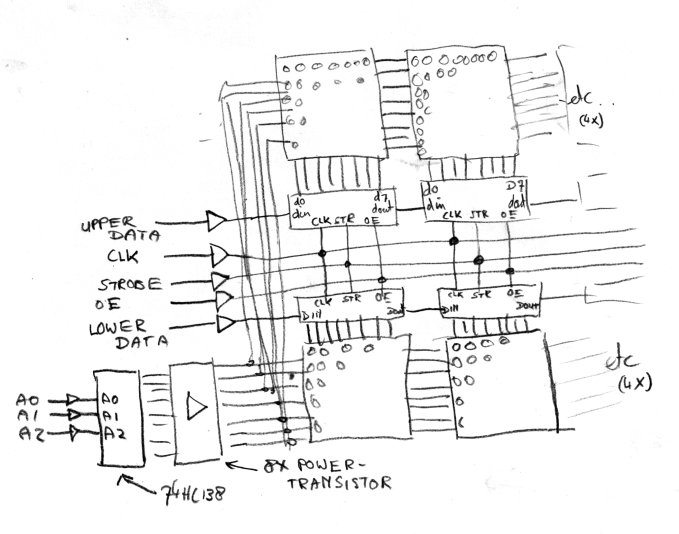 etc..
(4x)
d0 d7
din dout
CLK STR OE
d0 D7
din dout
CLK STR OE
UPPER
DATA
CLK
STROBE
OE
LOWER
DATA
CLK STR OE
DIN Dout
CLK STR OE
DIN Dout
etc
(4x)
A0 A0
A1 A1
A2 A2
8X POWER-
TRANSISTOR
74HC138